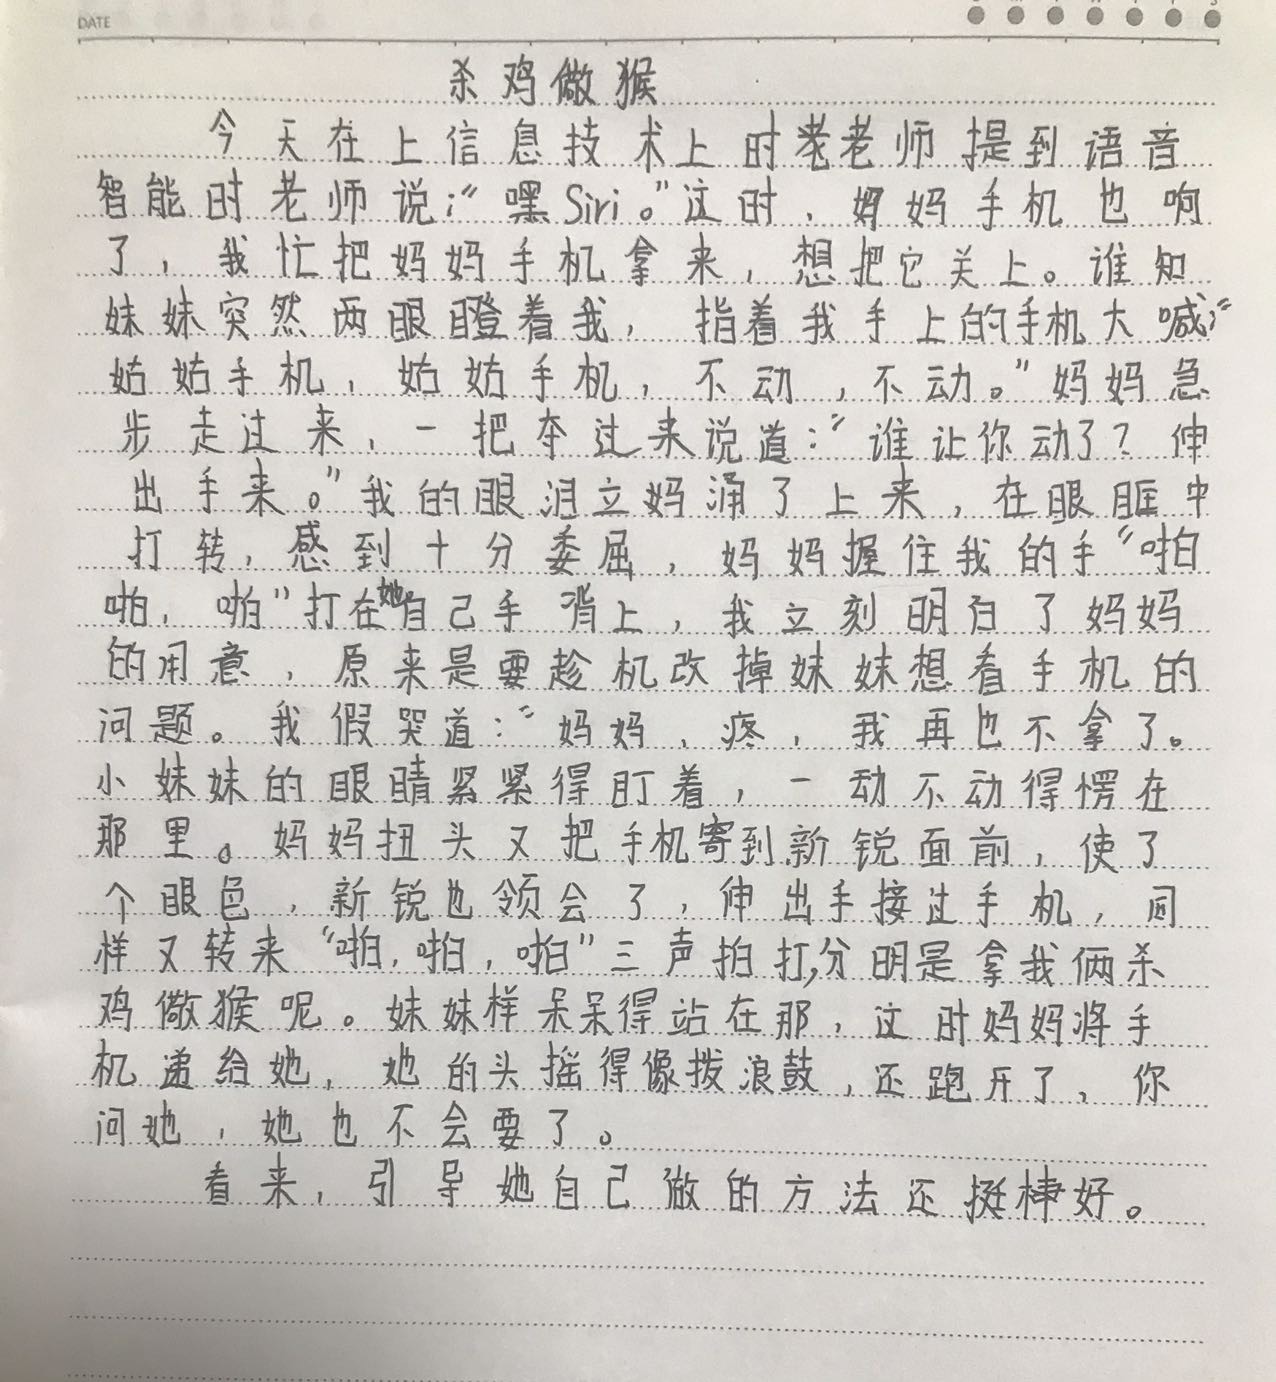 DATE
杀鸡儆猴
今天在上信息技术上时老老师提到语音
智能时老师说:“嘿Siri。”这时,妈妈手机也响
了,我忙把妈妈手机拿来,想把它关上。谁知
妹妹突然两眼瞪着我,指着我手上的手机大喊:“
姑姑手机,姑姑手机,不动,不动。”妈妈急
步走过来,一把夺过来说道:“谁让你动了?伸
出手来。”我的眼泪立妈涌了上来,在眼眶中
打转,感到十分委屈,妈妈握住我的手“啪
啪,啪”打在她自己手背上,我立刻明白了妈妈
的用意,原来是要趁机改掉妹妹想看手机的
问题。我假哭道:“妈妈,疼,我再也不拿了。
小妹妹的眼睛紧紧得盯着,一动不动得愣在
那里。妈妈扭头又把手机寄到新锐面前,使了
个眼色,新锐也领会了,伸出手接过手机,同
样又转来“啪,啪,啪”三声拍打,分明是拿我俩杀
鸡儆猴呢。妹妹样呆呆得站在那,这时妈妈将手
机递给她,她的头摇得像拨浪鼓,还跑开了、你
问她,她也不会要了。
看来,引导她自己做的方法还挺棒好。